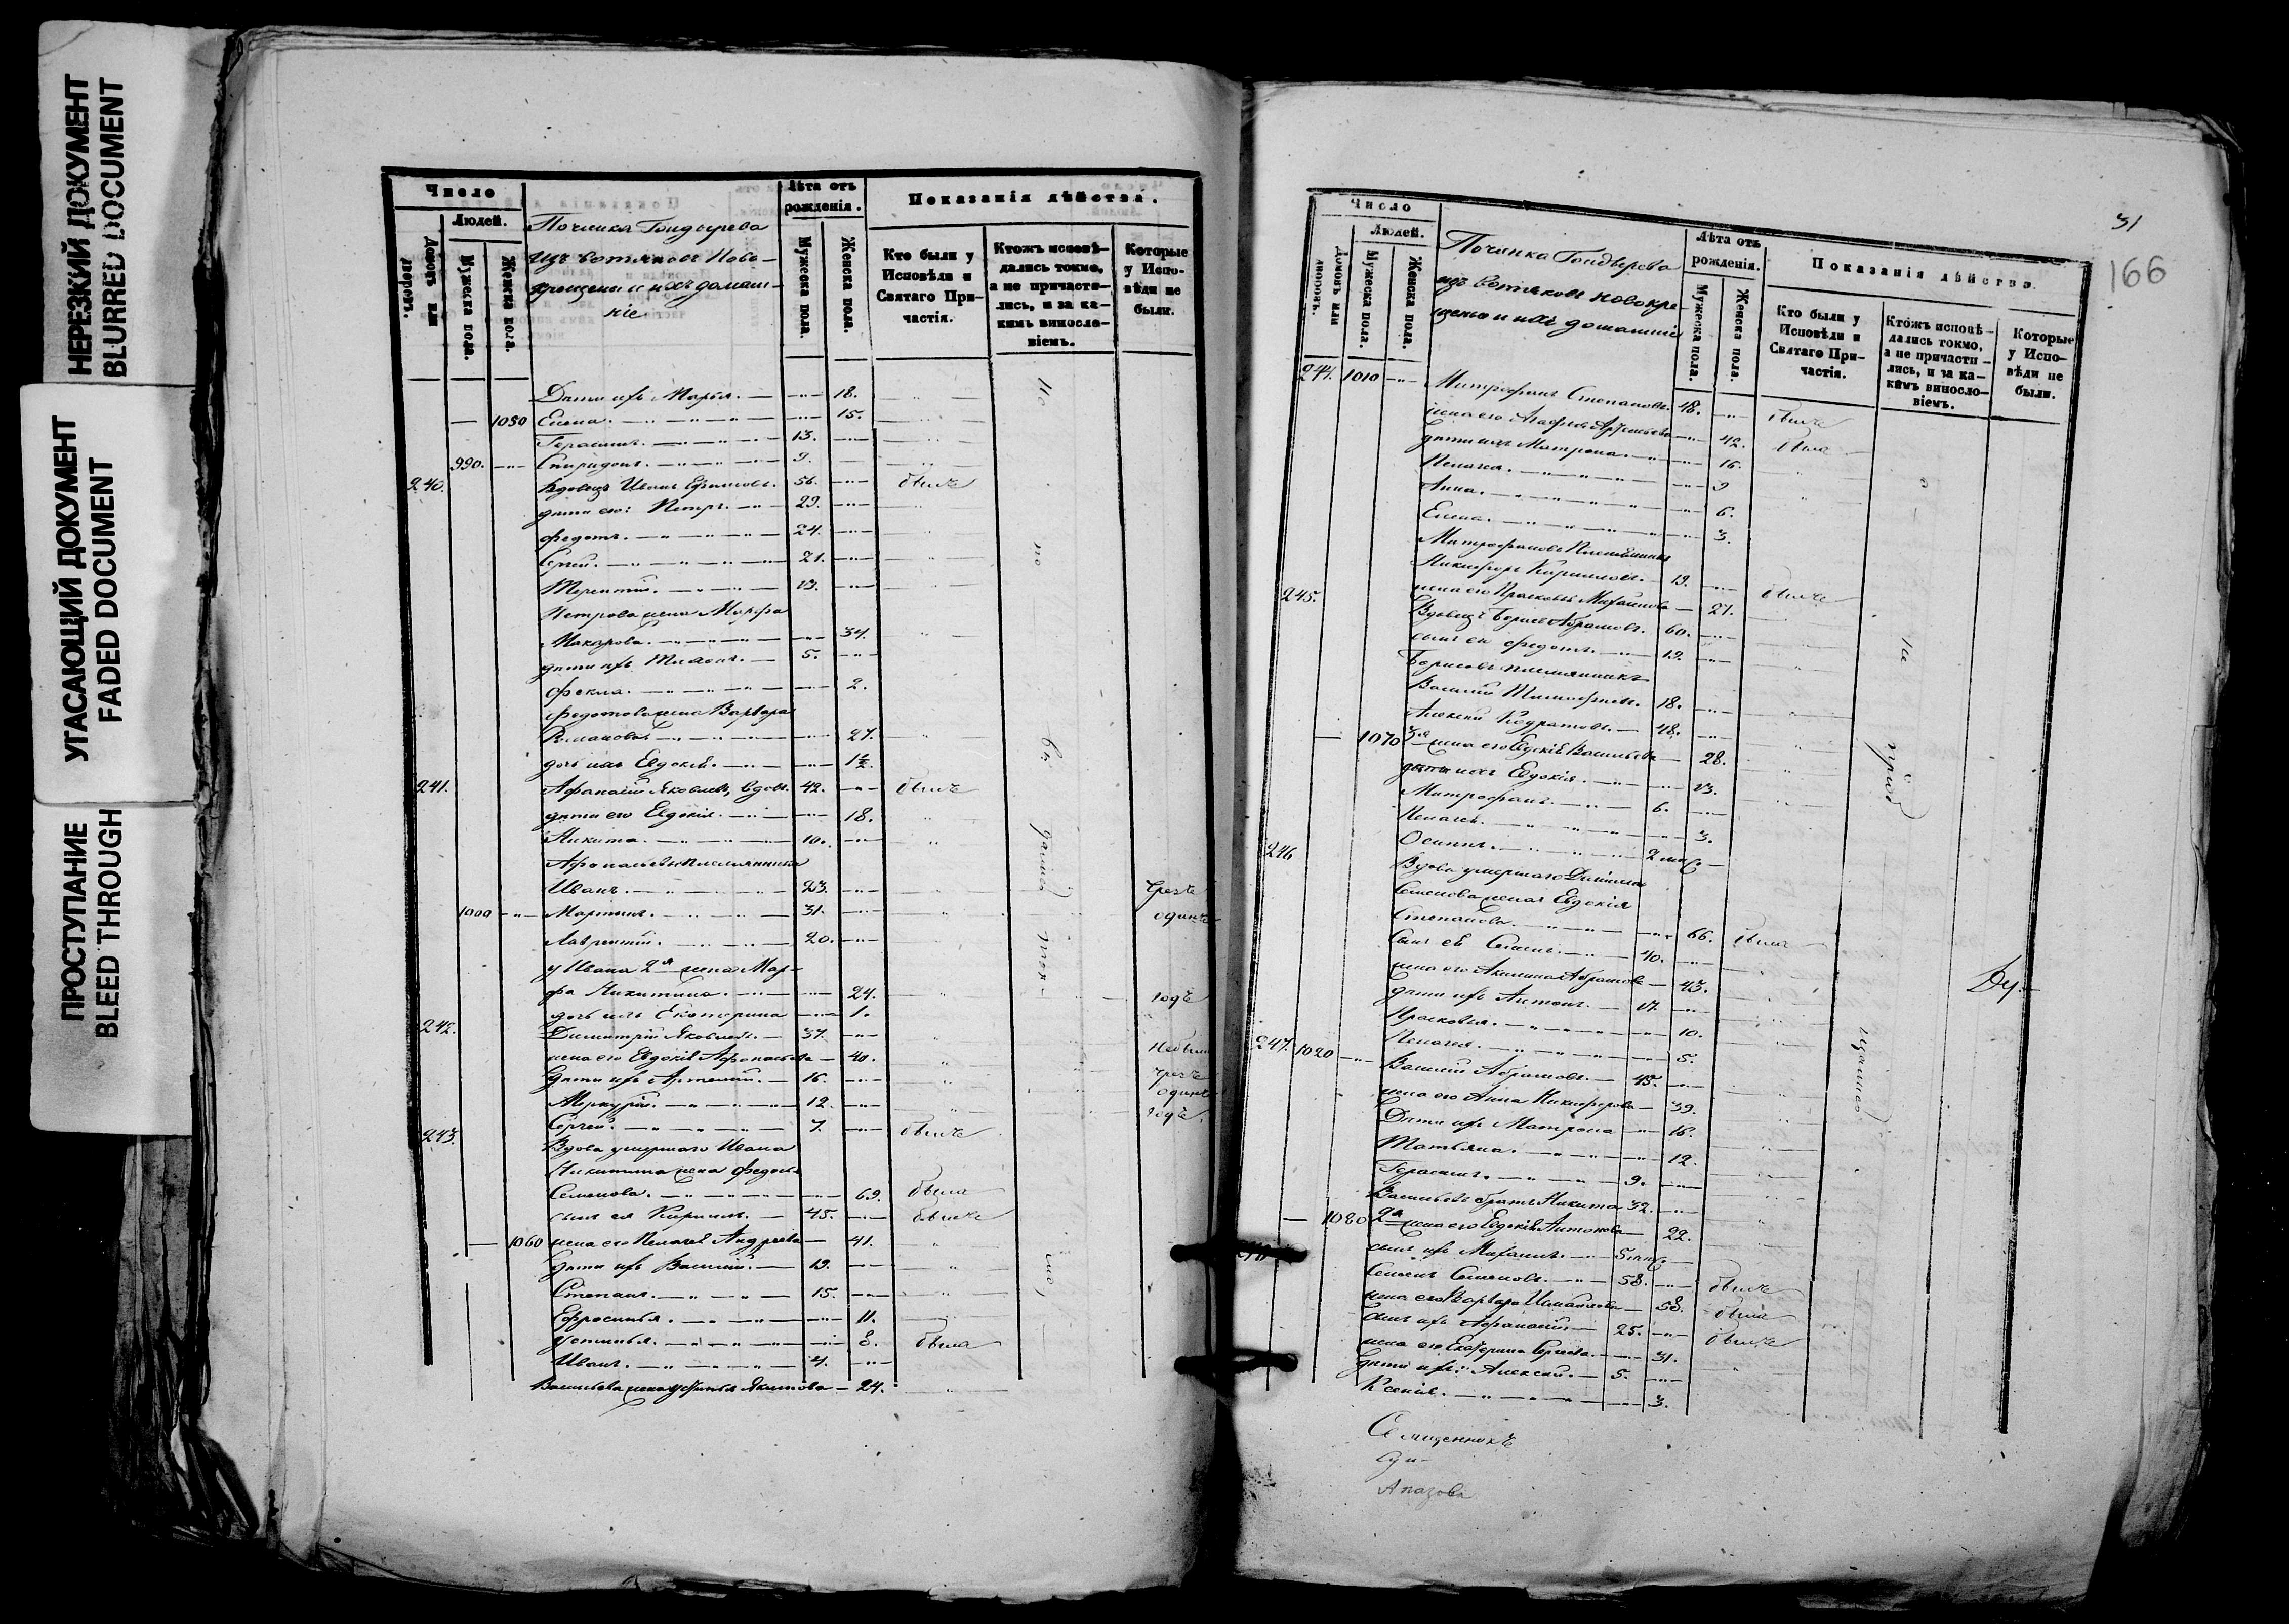 НЕРЕЗКИЙ ДОКУМЕНТ
BLURRED DOCUMENT
УГАСАЮЩИЙ ДОКУМЕНТ
FADED DOCUMENT
ПРОСТУПАНИЕ
BLEED THROUGH
Число
Людей.
Домовъ или дворовъ.
Мужеска пола.
Женска пола.
Починка Гондырева
изъ вотяковъ Ново-
крещены и ихъ домаш-
ніе
Лѣта отъ рожденія.
Мужеска пола.
Женска пола.
Показанія дѣйства.
Кто были у Исповѣди и Святаго Причастія.
Ктожъ исповѣ-
дались токмо,
а не причасти-
лись, и за ка-
кимъ виносло-
віемъ.
Которые
у Испо-
вѣди не
были.
Дѣти ихъ Марья. 18.
1050 Елена. 15.
Герасимъ. 13.
990. Спиридонъ. 9.
240. Вдовецъ Иванъ Ефимовъ. 56. былъ
дѣти его: Петръ. 29.
Федотъ. 24.
Сергей. 21.
Терентій. 13.
Петрова жена Марфа
Макарова. 34.
дѣти ихъ Тихонъ. 5.
Фекла. 2.
Федотова жена Варвара
Романова. 27.
дочь ихъ Евдокія. 1½.
241. Афанасій Яковлевъ, вдов. 42. былъ
дѣти его Евдокія. 18.
Никита. 10.
Афонасьевы племянники
Иванъ. 23.
1000 Мартинъ. 31.
Лаврентій. 20.
у Ивана 2я жена Мар-
фа Никитина. 24.
дочь ихъ Екатерина 1.
242. Димитрій Яковлевъ. 37.
жена его Евдокія Афонасьева 40.
дѣти ихъ Артемій. 16.
Меркурій. 12.
Сергей. 7.
243. Вдова умершаго Ивана
Никитина жена Федосья
Семенова. 69. была
сынъ ея Кирилъ. 45. былъ
1060 жена его Пелагея Андреева 41.
дѣти ихъ Василій. 19.
Степанъ. 15.
Ефросинья. 11.
Устинья. 8. была
Иванъ. 4.
Васильева жена Устинья Якимова 24.
чрезъ
одинъ
годъ
чрезъ
одинъ
годъ
31
166
Число
Людей.
Домовъ или дворовъ.
Мужеска пола.
Женска пола.
Починка Гондырева
изъ вотяковъ новокре-
щены и ихъ домашніе
Лѣта отъ рожденія.
Мужеска пола.
Женска пола.
Показанія дѣйства.
Кто были у Исповѣди и Святаго Причастія.
Ктожъ исповѣ-
дались токмо,
а не причасти-
лись, и за ка-
кимъ виносло-
віемъ.
Которые
у Испо-
вѣди не
были.
244. 1010 Митрофанъ Степановъ. 48. былъ
жена его Агафья 42. была
дѣти ихъ Матрона. 16.
Пелагея. 9
Анна. 6.
Елена. 3.
Митрофановъ племянникъ
Никифоръ Кириловъ. 19. былъ
жена его Прасковья Михайлова 21.
245. Вдовецъ Борисъ Абрамовъ. 60.
сынъ ея Федотъ. 19.
Борисовъ племянникъ
Василій Тимофеевъ. 18.
Алексей Кодратовъ. 48.
1070 3я жена его Евдокія Васильева 28.
дѣти ихъ Евдокія. 13.
Митрофанъ. 6.
Пелагея. 3.
Осипъ. 2 мѣс.
246 Вдова умершаго
Семенова жена Евдокія
Степанова. 66. была
сынъ ея Семенъ. 40.
жена его Акилина Абрамова 43.
дѣти ихъ Антонъ. 17.
Прасковья. 10.
Пелагея. 5.
247. 1020 Василій Абрамовъ. 45.
жена его Анна Никифорова 39.
Дѣти ихъ Матрона 16.
Татьяна. 12.
Герасимъ. 9.
Васильевъ братъ Никита 32.
1080 2я жена его Евдокія Антонова 22.
сынъ ихъ Михаилъ. 5 мѣс.
Семенъ Семеновъ. 58. былъ
жена его Варвара 58. была
сынъ ихъ Афанасій 25. былъ
жена его Екатерина Сергеева. 31.
дѣти ихъ: Алексей. 5.
Ксенія. 3.
Священникъ